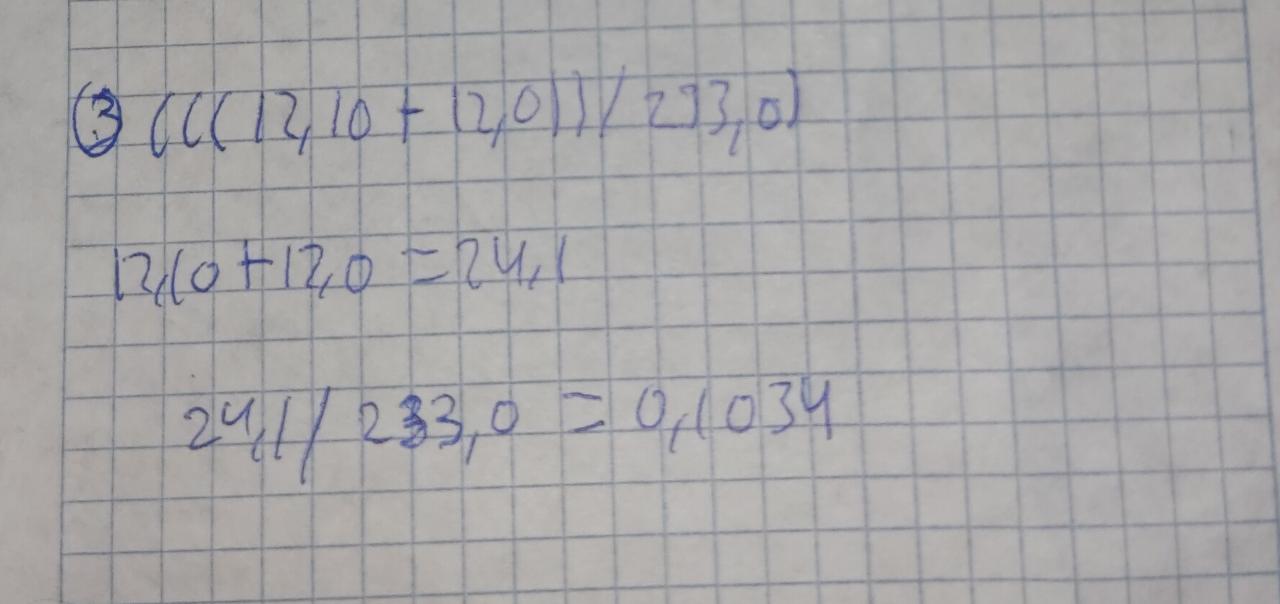 ③ (((12,10 + 12,0))/233,0)
12,10+12,0 = 24,1
24,1/233,0 = 0,1034